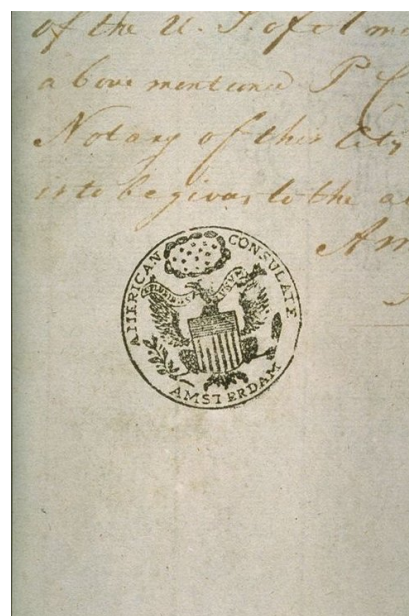 of the U. S. of Am
above mentioned P C
Notary of this City
is to be given to the a
Am
AMERICAN CONSULATE
E PLURIBUS UNUM
AMSTERDAM